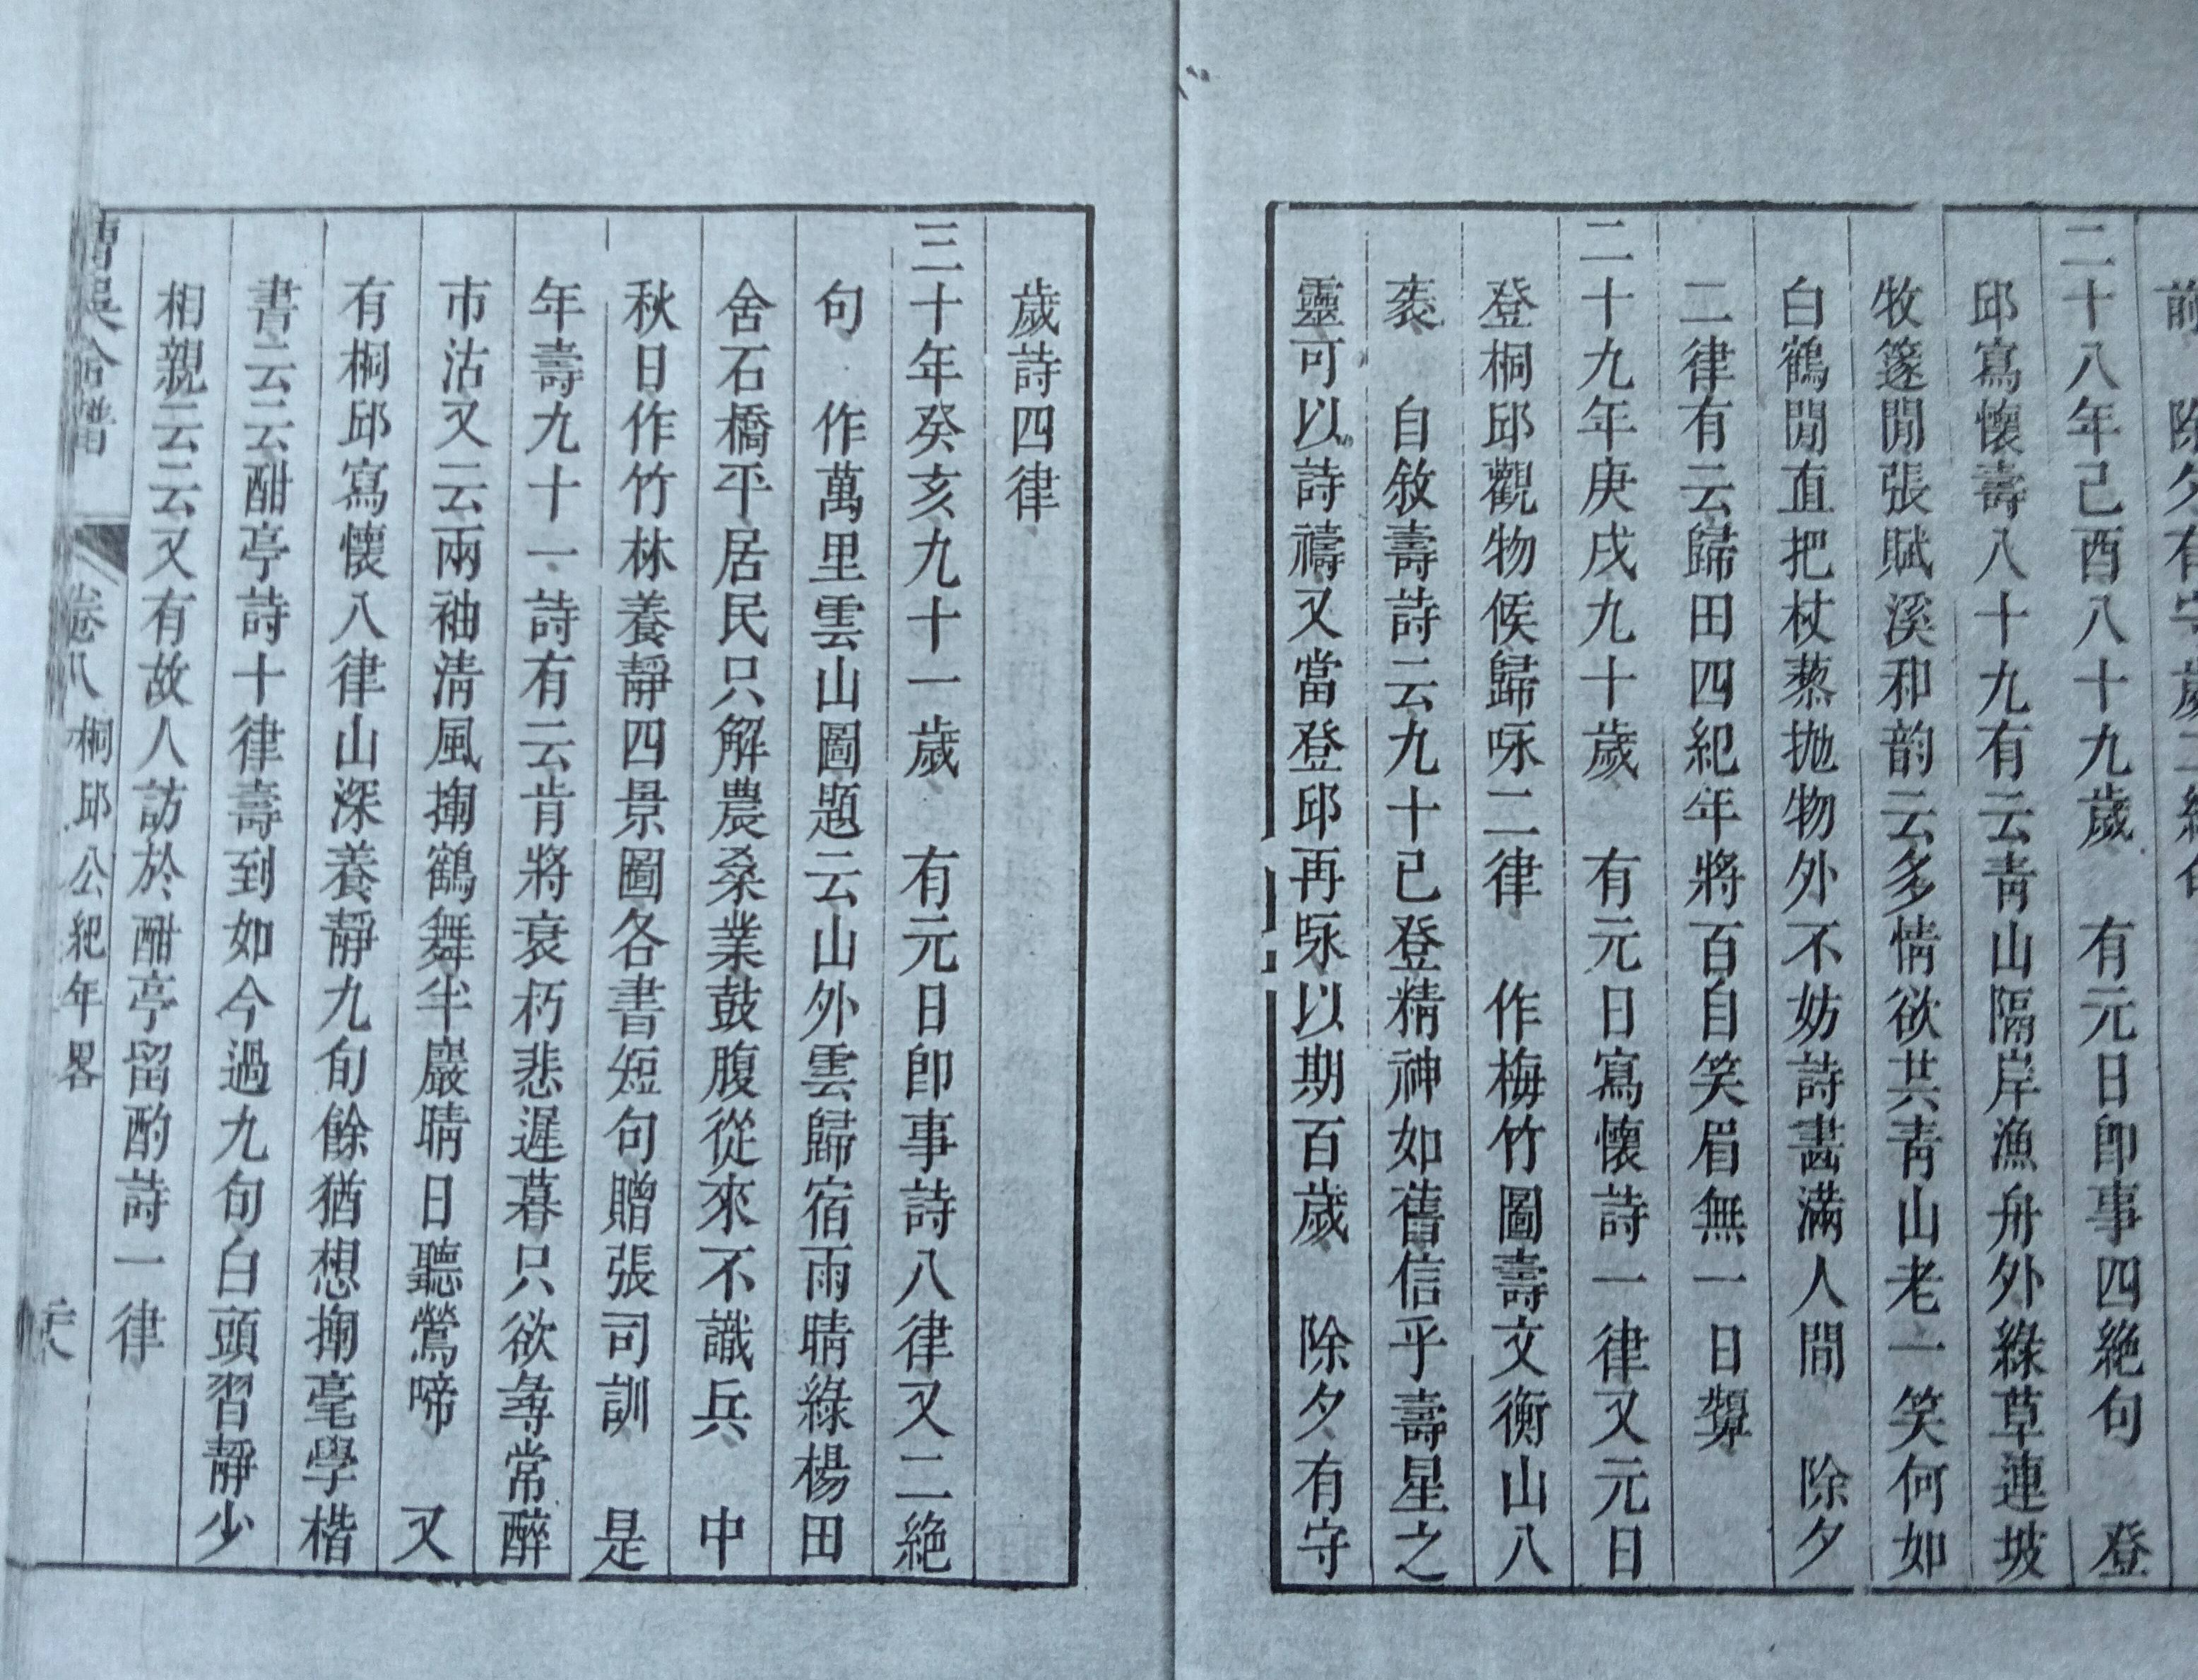 前　除夕有守歲二絶句
二十八年己酉八十九歲　有元日卽事四絶句　登
邱寫懷壽八十九有云靑山隔岸漁舟外綠草連坡
牧篴閒張賦溪和韵云多情欲共靑山老一笑何如
白鶴閒直把杖藜拋物外不妨詩畵滿人間　除夕
二律有云歸田四紀年將百自笑眉無一日顰
二十九年庚戌九十歲　有元日寫懷詩一律又元日
登桐邱觀物候歸咏二律　作梅竹圖壽文衡山八
袠　自敘壽詩云九十已登精神如舊信乎壽星之
靈可以詩禱又當登邱再咏以期百歲　除夕有守
歲詩四律
三十年癸亥九十一歲　有元日卽事詩八律又二絶
句　作萬里雲山圖題云山外雲歸宿雨晴綠楊田
舍石橋平居民只解農桑業鼓腹從來不識兵　中
秋日作竹林養靜四景圖各書短句贈張司訓　是
年壽九十一詩有云肯將衰朽悲遲暮只欲尋常醉
市沽又云兩袖淸風攜鶴舞半巖晴日聽鶯啼　又
有桐邱寫懷八律山深養靜九旬餘猶想搦毫學楷
書云云酣亭詩十律壽到如今過九旬白頭習靜少
相親云云又有故人訪於酣亭留酌詩一律
卷八　桐邱公紀年畧